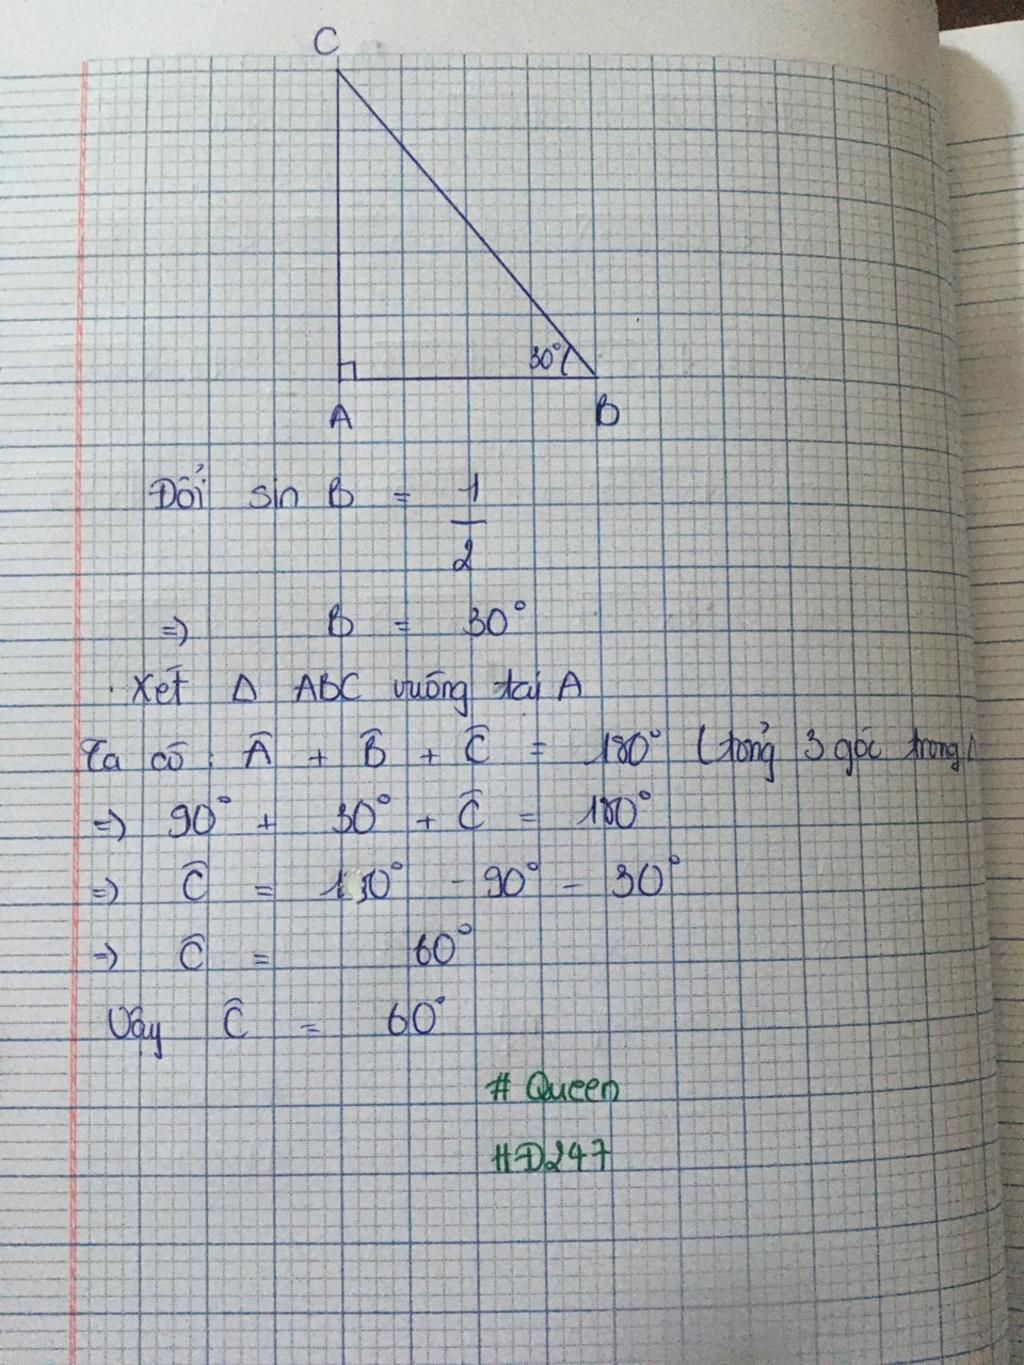 C
30°
A
B
Đổi sin B = 1/2
=> B = 30°
Xét Δ ABC vuông tại A
Ta có : Â + B̂ + Ĉ = 180° (tổng 3 góc trong Δ
=> 90° + 30° + Ĉ = 180°
=> Ĉ = 180° - 90° - 30°
=> Ĉ = 60°
Vậy Ĉ = 60°
# Queen
#D247